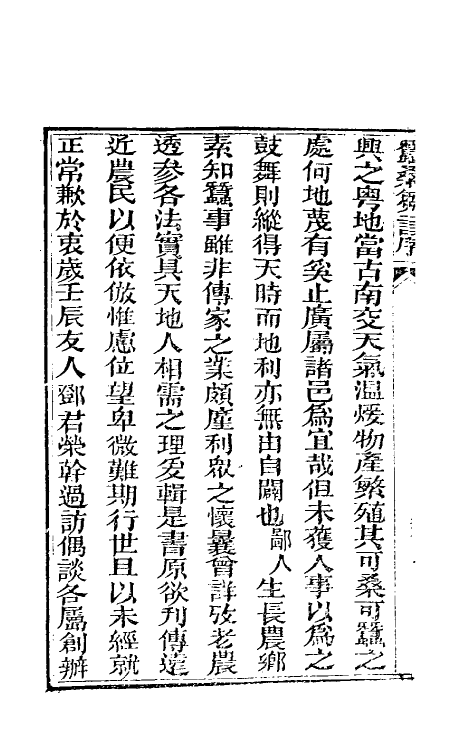 蠶桑輯要序
興之粵地當古南交天氣溫煖物產繁殖其可桑可蠶之
處何地蔑有奚止廣屬諸邑爲宜哉但未獲人事以爲之
鼓舞則縱得天時而地利亦無由自闢也鄙人生長農鄉
素知蠶事雖非傳家之業頗廑利眾之懷曩曾詳攷老農
透參各法實具天地人相需之理爰輯是書原欲刋傳遠
近農民以便依倣惟慮位望卑微難期行世且以未經就
正常歉於衷歲壬辰友人鄧君榮幹過訪偶談各屬創辦